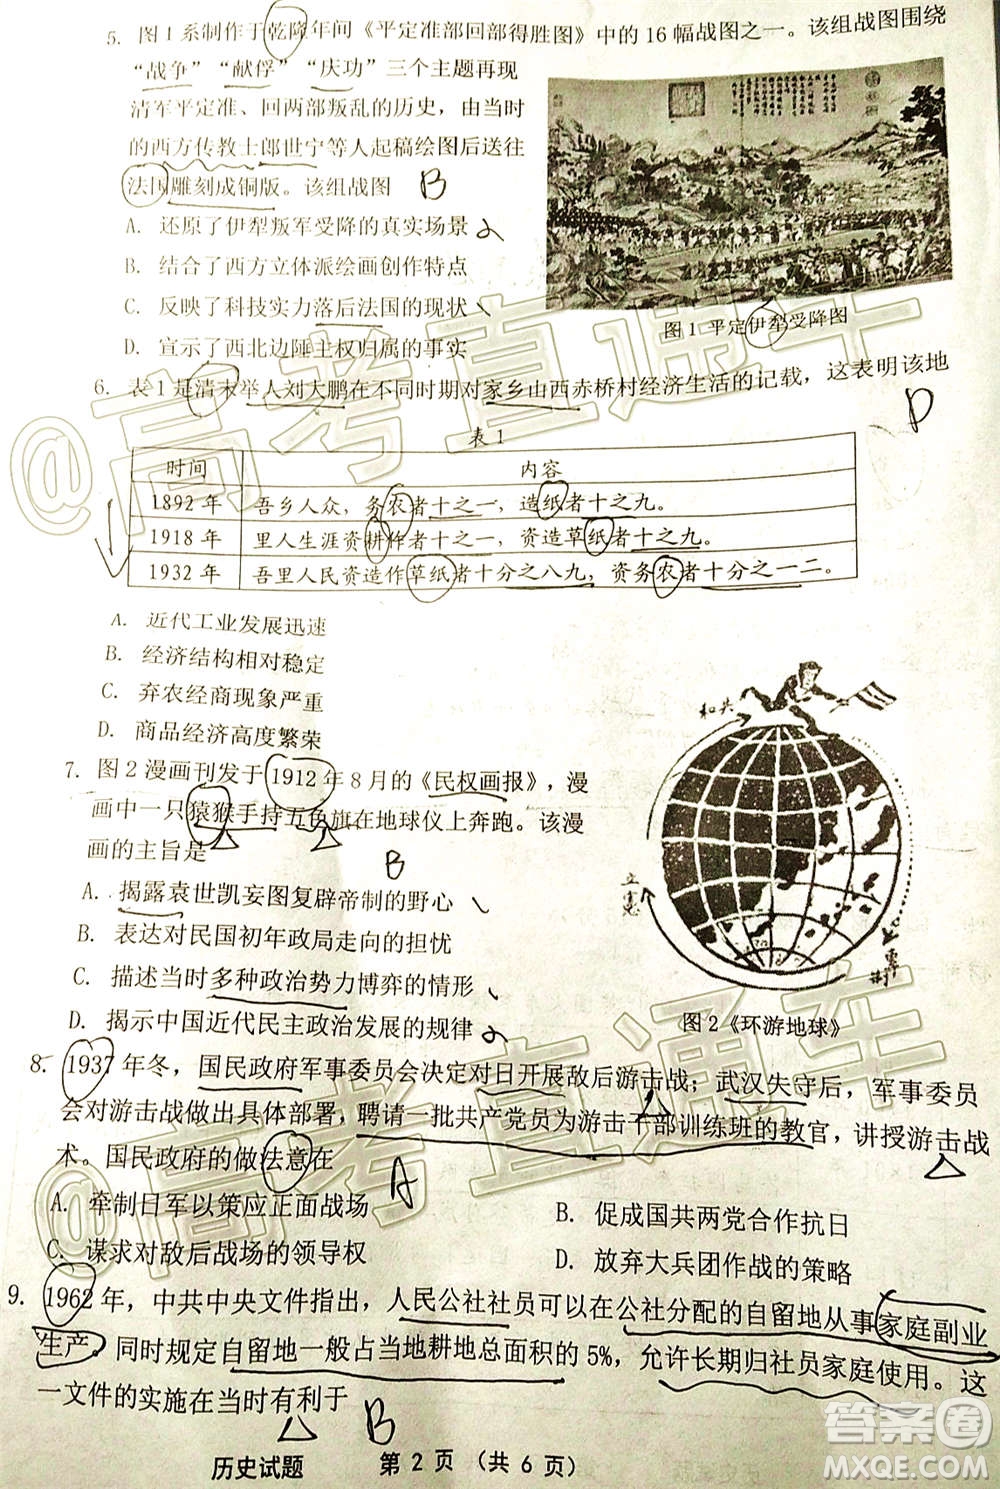 5. 图1系制作于乾隆年间《平定准部回部得胜图》中的16幅战图之一。该组战图围绕
“战争”“献俘”“庆功”三个主题再现
清军平定准、回两部叛乱的历史，由当时
的西方传教士郎世宁等人起稿绘图后送往
法国雕刻成铜版。该组战图
B
A. 还原了伊犁叛军受降的真实场景
B. 结合了西方立体派绘画创作特点
C. 反映了科技实力落后法国的现状
D. 宣示了西北边陲主权归属的事实
图1 平定伊犁受降图
6. 表1是清末举人刘大鹏在不同时期对家乡山西赤桥村经济生活的记载，这表明该地
D
表1
时间 内容
1892年 吾乡人众，务农者十之一，造纸者十之九。
1918年 里人生涯资耕作者十之一，资造草纸者十之九。
1932年 吾里人民资造作草纸者十分之八九，资务农者十分之一二。
A. 近代工业发展迅速
B. 经济结构相对稳定
C. 弃农经商现象严重
D. 商品经济高度繁荣
7. 图2漫画刊发于1912年8月的《民权画报》，漫
画中一只猿猴手持五色旗在地球仪上奔跑。该漫
画的主旨是
B
A. 揭露袁世凯妄图复辟帝制的野心
B. 表达对民国初年政局走向的担忧
C. 描述当时多种政治势力博弈的情形
D. 揭示中国近代民主政治发展的规律
和共
立宪
专制
图2《环游地球》
8. 1937年冬，国民政府军事委员会决定对日开展敌后游击战；武汉失守后，军事委员
会对游击战做出具体部署，聘请一批共产党员为游击干部训练班的教官，讲授游击战
术。国民政府的做法意在
A
A. 牵制日军以策应正面战场
B. 促成国共两党合作抗日
C. 谋求对敌后战场的领导权
D. 放弃大兵团作战的策略
9. 1962年，中共中央文件指出，人民公社社员可以在公社分配的自留地从事家庭副业
生产。同时规定自留地一般占当地耕地总面积的5%，允许长期归社员家庭使用。这
一文件的实施在当时有利于
B
历史试题 第2页（共6页）
@高考直通车
@高考直通车
答案卷
MXQE.COM